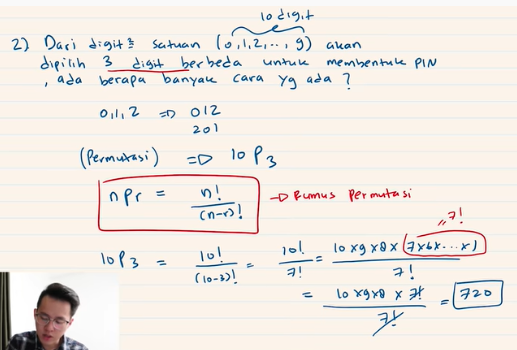 10 digit
2) Dari digit² satuan (0,1,2,..,9) akan
dipilih 3 digit berbeda untuk membentuk PIN
, ada berapa banyak cara yg ada ?
0,1,2 => 012
201
(Permutasi) => 10 P 3
n P r = n! / (n-r)! -> Rumus Permutasi
10 P 3 = 10! / (10-3)! = 10! / 7! = 10 x 9 x 8 x (7x6x...x1) / 7!
= 7!
= 10 x 9 x 8 x 7! / 7! = 720